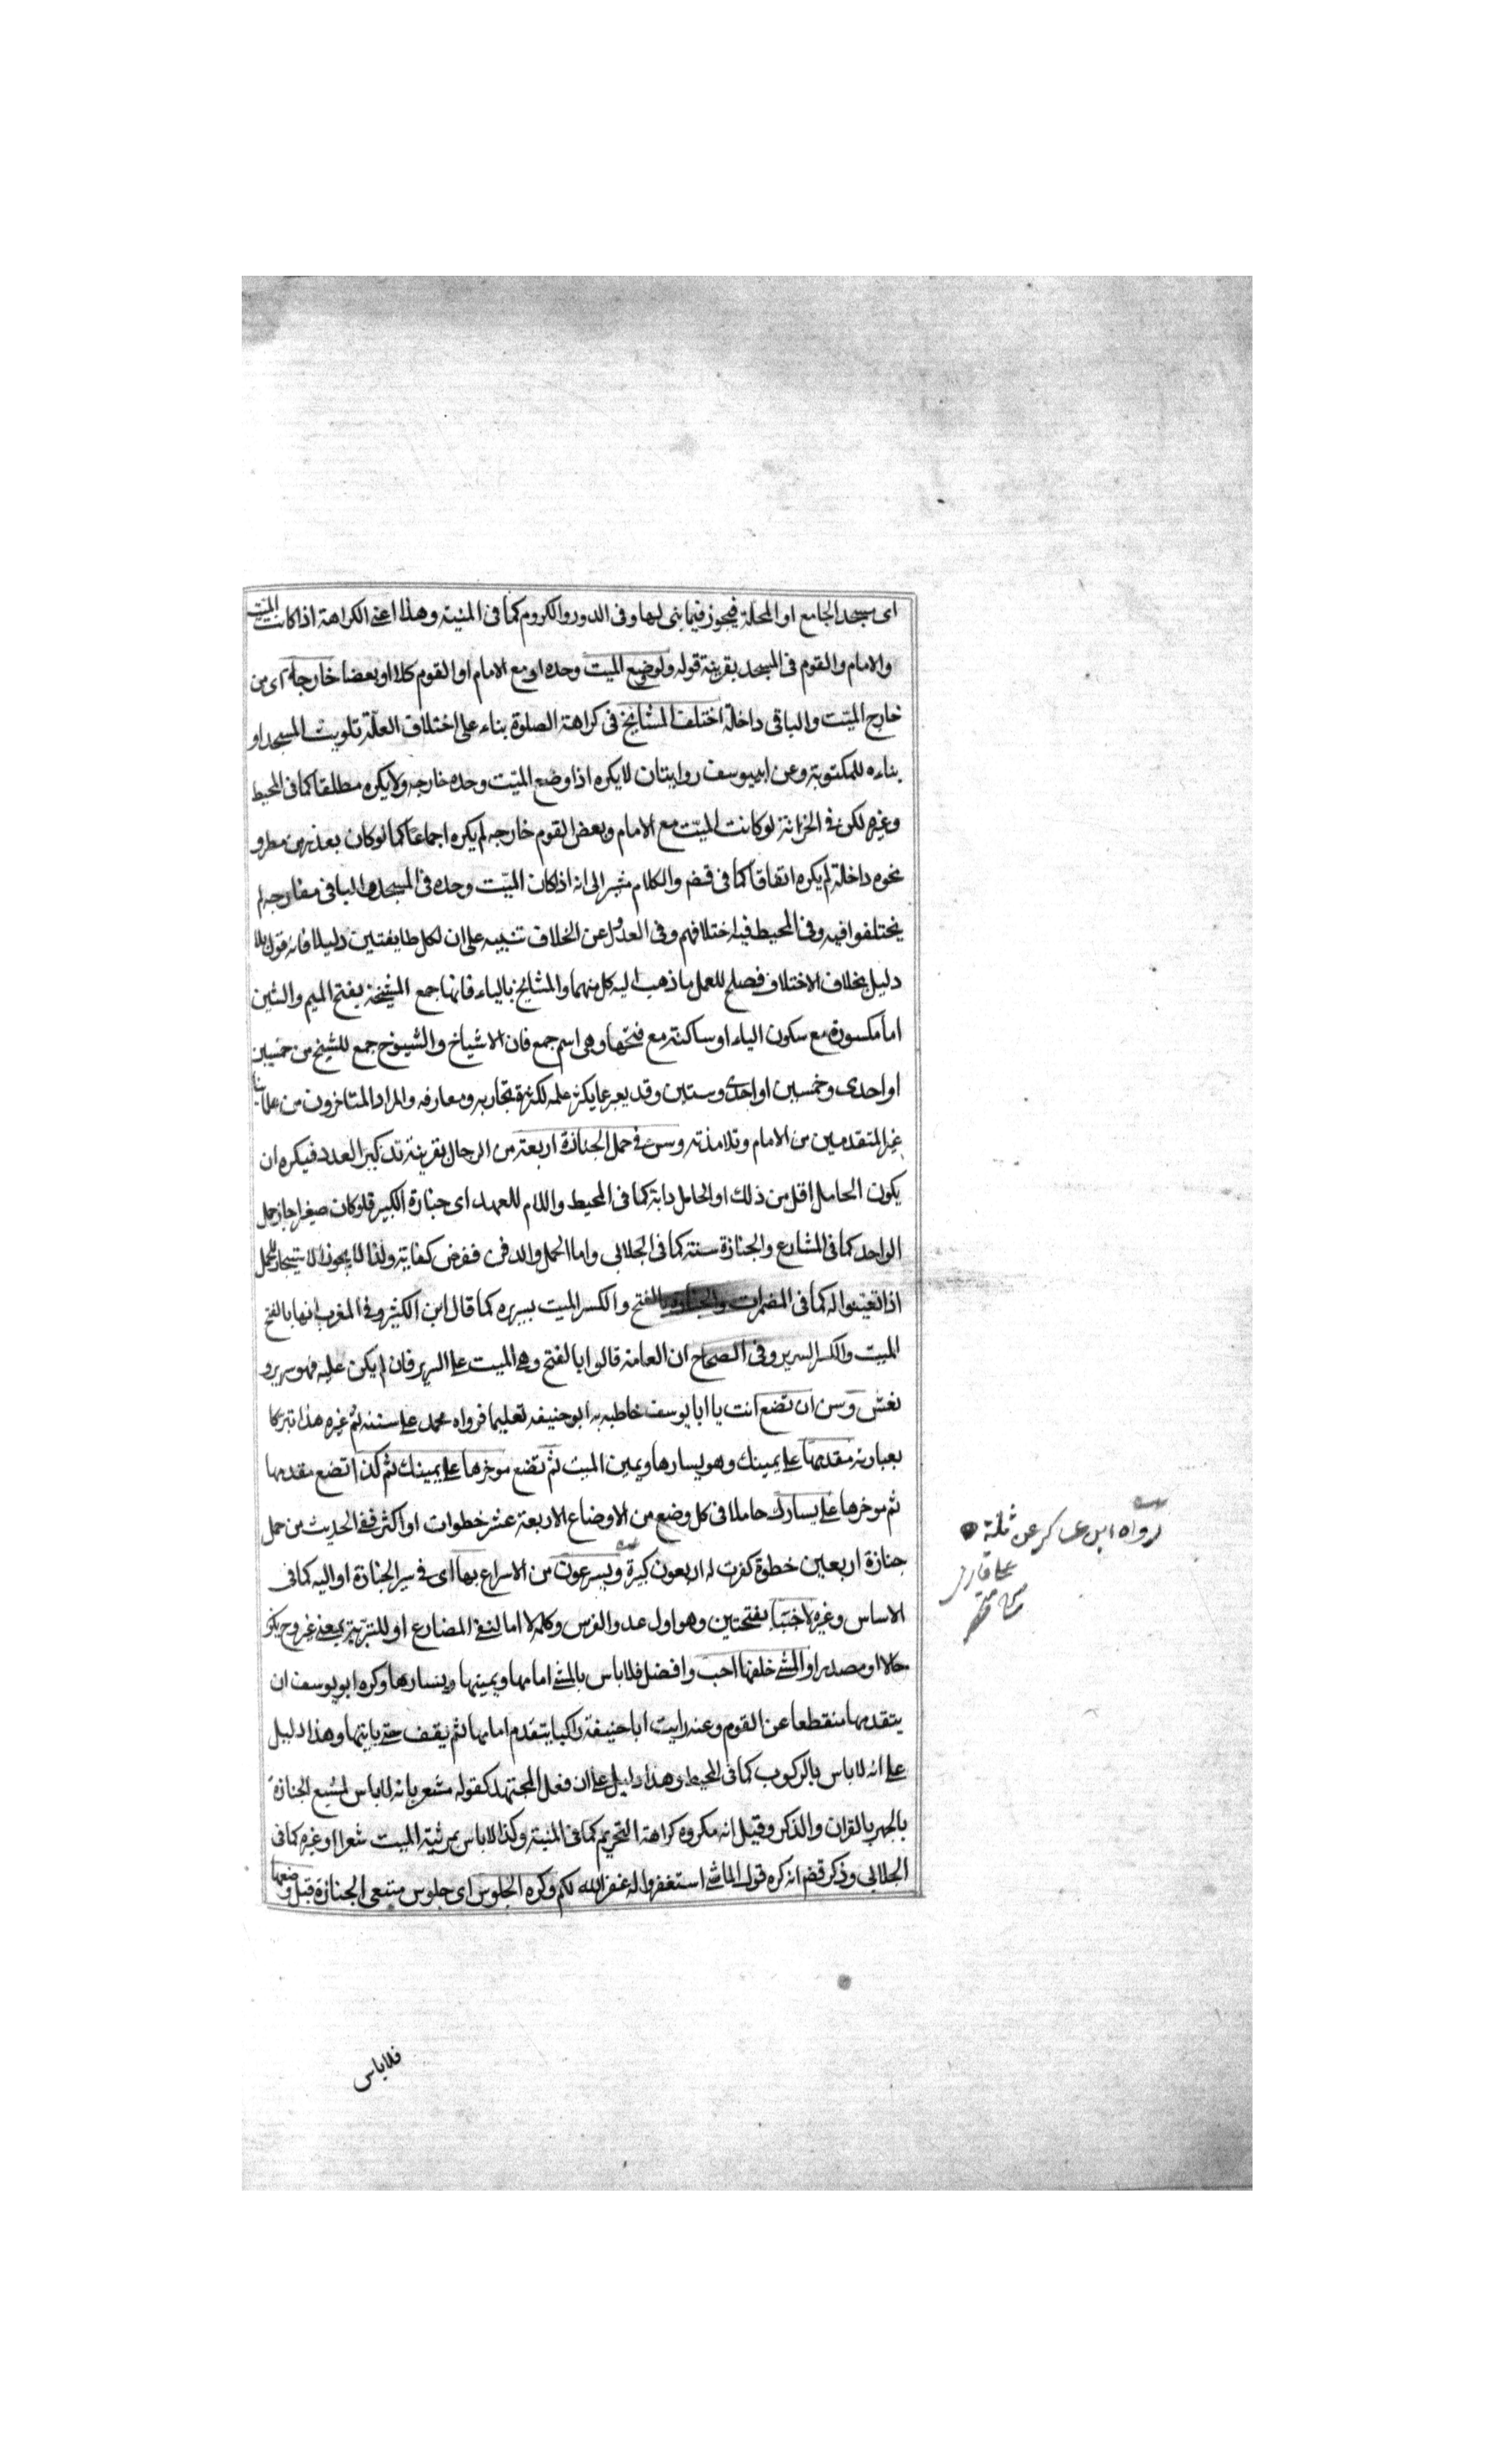 اى مسجد الجامع او المحلة فيجوز فيما بنى لها وفى الدور والكروم كما فى المنية وهذا اعنى الكراهة اذا كانت الميت
والامام والقوم فى المسجد بقرينة قوله ولو وضع الميت وحده او مع الامام او القوم كلا او بعضا خارجه اى من
خارج الميت والباقى داخلة اختلف المشايخ فى كراهة الصلوة بناء على اختلاف العلة تلويث المسجد او
بناءه للمكتوبة وعن ابى يوسف روايتان لا يكره اذا وضع الميت وحده خارجه ولا يكره مطلقا كما فى المحيط
وغيره لكن فى الخزانة لو كانت الميت مع الامام وبعض القوم خارجه لم يكره اجماعا كما لو كان بعذر من مطر و
نحوه داخلة لم يكره اتفاقا كما فى قضـ والكلام مشير الى انه اذا كان الميت وحده فى المسجد والباقى خارجه لم
يختلفوا فيه وفى المحيط فيه اختلافهم وفى العدول عن الخلاف تنبيه على ان لكل طايفتين دليلا فانه قول بلا
دليل بخلاف الاختلاف فصلح للعمل ما ذهب اليه كل منهما والمشايخ بالياء فانها جمع المشيخة بفتح الميم والشين
اما مكسورة مع سكون الياء او ساكنة مع فتحها وهى اسم جمع فان الاشياخ والشيوخ جمع للشيخ من خمسين
او احدى وخمسين او احدى وستين وقد يعبر عما يكثر علمه لكثرة تجاربه ومعارفه والمراد المتاخرون من علمائنا
غير المتقدمين من الامام وتلامذته وسن فى حمل الجنازة اربعة من الرجال بقرينة تذكير العدد فيكره ان
يكون الحامل اقل من ذلك او الحامل دابة كما فى المحيط واللام للعهد اى جنازة الكبير فلو كان صغيرا جاز حمل
الواحد كما فى المشارع والجنازة سنة كما فى الجلابى واما الحمل والدفن ففرض كفاية ولذا لا يجوز الاستيجار للحمل
اذا تعينوا له كما فى المضمرات والجنازة بالفتح والكسر الميت بسريره كما قال ابن الكثير وفى المغرب انها بالفتح
الميت والكسر السرير وفى الصحاح ان العامة قالوا بالفتح وهى الميت على السرير فان لم يكن عليه فهو سرير و
نعش وسن ان تضع انت يا ابا يوسف خاطبه به ابو حنيفه تعليما فرواه محمد على سننه ثم غيره هذا تبركا
بعبارته مقدمها على يمينك وهو يسارها ويمين الميت ثم تضع موخرها على يمينك ثم كذا تضع مقدمها
ثم موخرها على يسارك حاملا فى كل وضع من الاوضاع الاربعة عشر خطوات او اكثر ففى الحديث من حمل
جنازة اربعين خطوة كفرت له اربعون كبيرة ويسرعون من الاسراع بها اى فى سير الجنازة او اليه كما فى
الاساس وغيره لا خببا بفتحتين وهو اول عدو الفرس وكلمة لا اما لنفى المضارع او للتبرئة بمعنى غير وح يكون
حالا او مصدرا والمشى خلفها احب وافضل فلا باس بالمشى امامها ويمينها ويسارها وكره ابو يوسف ان
يتقدمها منقطعا عن القوم وعنه رايت ابا حنيفة راكبا يتقدم امامها ثم يقف حتى ياتيها وهذا دليل
على انه لا باس بالركوب كما فى المحيط وهذا دليل على ان فعل المجتهد كقوله مشعر بانه لا باس لمشيع الجنازة
بالجهر بالقران والذكر وقيل انه مكروه كراهة التحريم كما فى المنية وكذا لا باس بمرثية الميت شعرا او غيره كما فى
الجلابى وذكر قضـ انه كره قول الماشى استغفروا له غفر الله لكم وكره الجلوس اى جلوس متبعى الجنازة قبل وضعها
رواه ابن عساكر عن
على قارى
فلا باس